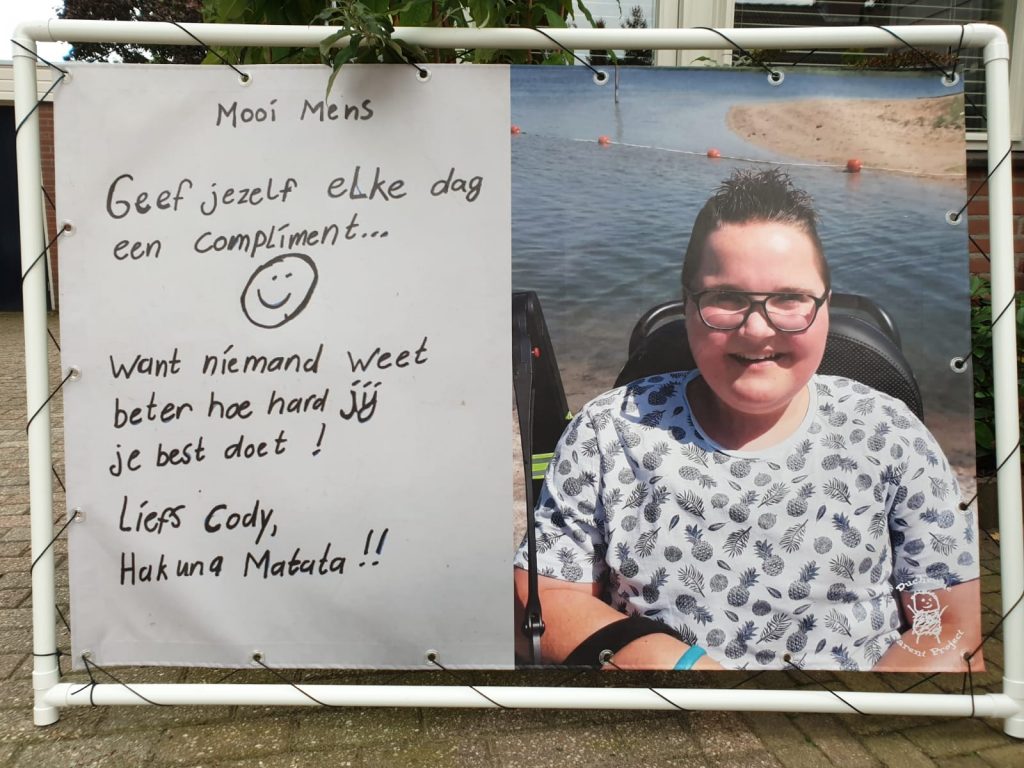 Mooi Mens
Geef jezelf elke dag
een compliment...
want niemand weet
beter hoe hard jíj́
je best doet !
Liefs Cody,
Hakuna Matata !!
Duchenne
Parent Project